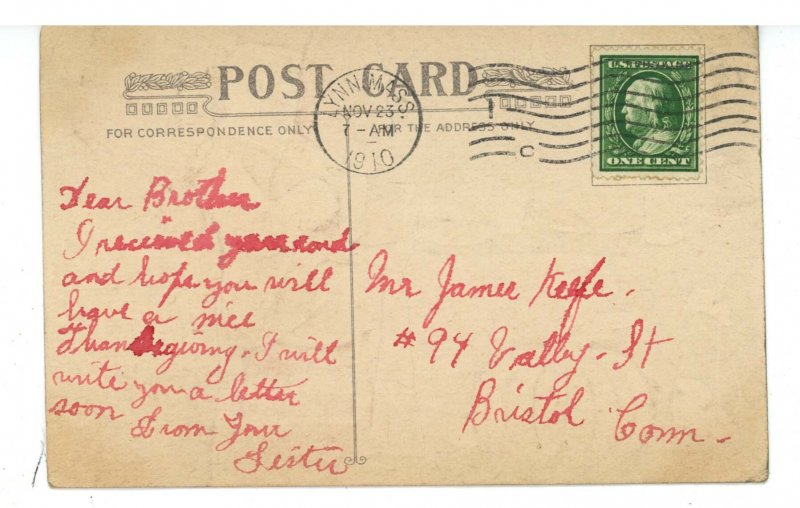 POST CARD
FOR CORRESPONDENCE ONLY
FOR THE ADDRESS ONLY
LYNN MASS.
NOV 23
7 - AM
1910
C
U.S. POSTAGE
ONE CENT
Dear Brother
I received your card
and hope you will
have a nice
Thanksgiving. I will
write you a letter
soon
From Your
Sister
Mr James Keefe.
#94 Vally. St
Bristol Conn.